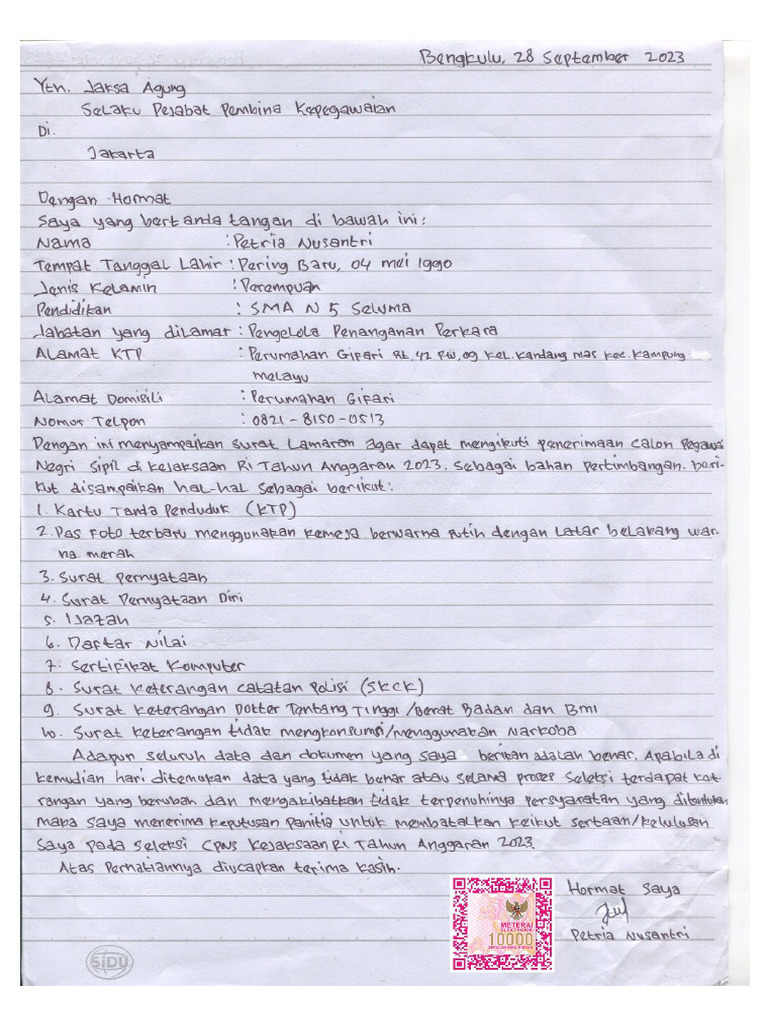 Bengkulu, 28 September 2023
Yth. Jaksa Agung
Selaku Pejabat Pembina Kepegawaian
Di.
Jakarta
Dengan Hormat
Saya yang bertanda tangan di bawah ini:
Nama : Petria Nusantri
Tempat Tanggal Lahir : Pering Baru, 04 mei 1990
Jenis Kelamin : Perempuan
Pendidikan : SMA N 5 Seluma
Jabatan yang dilamar : Pengelola Penanganan Perkara
Alamat KTP : Perumahan Gifari Rt.42 Rw.09 Kel.Kandang mas Kec.Kampung
Melayu
Alamat Domisili : Perumahan Gifari
Nomor Telpon : 0821-8150-0513
Dengan ini menyampaikan surat Lamaran agar dapat mengikuti penerimaan Calon Pegawai
Negri Sipil di Kejaksaan RI Tahun Anggaran 2023. Sebagai bahan pertimbangan. beri-
kut disampaikan hal-hal sebagai berikut:
1. Kartu Tanda Penduduk (KTP)
2. Pas Foto terbaru menggunakan kemeja berwarna putih dengan latar belakang war-
na merah
3. Surat Pernyataan
4. Surat Pernyataan Diri
5. Ijazah
6. Daftar Nilai
7. Sertifikat Komputer
8. Surat Keterangan Catatan Polisi (SKCK)
9. Surat Keterangan Dokter Tentang Tinggi/Berat Badan dan Bmi
10. Surat keterangan tidak mengkonsumsi/menggunakan Narkoba
Adapun seluruh data dan dokumen yang saya berikan adalah benar. Apabila di
kemudian hari ditemukan data yang tidak benar atau selama proses seleksi terdapat ket-
rangan yang berubah dan mengakibatkan tidak terpenuhinya persyaratan yang ditentukan
maka saya menerima keputusan panitia untuk membatalkan keikut sertaan/kelulusan
Saya pada seleksi CPNS Kejaksaan RI Tahun Anggaran 2023.
Atas Perhatiannya diucapkan terima kasih.
Hormat Saya
METERAI
ELEKTRONIK
10000
Petria Nusantri
SiDU